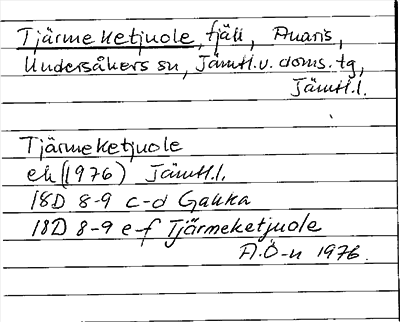 Tjärmeketjuole, fjäll, Anaris,
Undersåkers sn, Jämtl.v. doms. tg,
Jämtl.l.
Tjärmeketjuole
ek (1976) Jämtl.l.
18D 8-9 c-d Gakka
18D 8-9 e-f Tjärmeketjuole
A.Ö-n 1976.